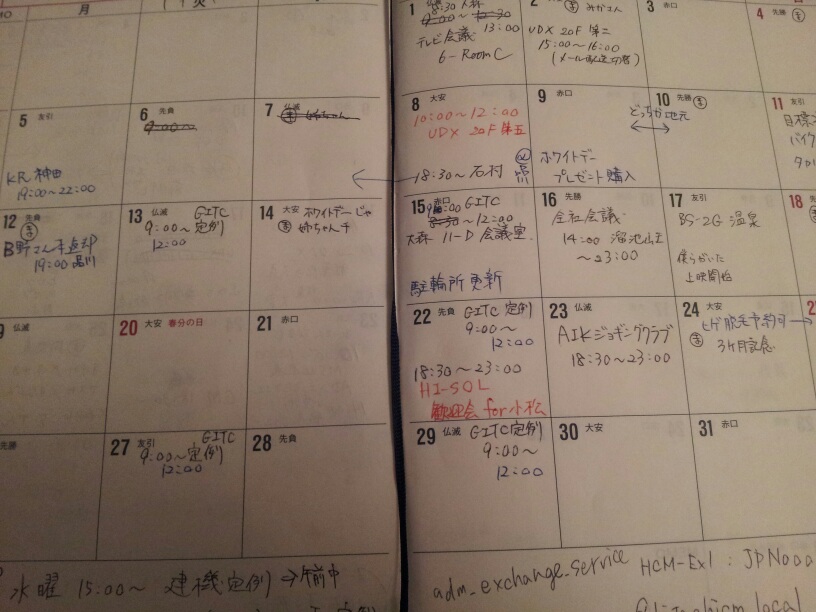 月
火
1
18:30 大森
9:00～10:30
13:00
テレビ会議
6-Room C
2
UDX 20F 第二
15:00～16:00
3 赤口
4 先勝
5 友引
KR 神田
19:00～22:00
6 先負
9:00～
7 仏滅
8 大安
10:00～12:00
UDX 20F 第五
18:30～石村
9 赤口
ホワイトデー
プレゼント購入
10 先勝
どっちか地元
11 友引
目標
バイク
12 先負
19:00 品川
13 仏滅 GITC
9:00～定例
12:00
14 大安 ホワイトデーじゃ
姉ちゃん千
15 赤口 GITC
～12:00
大森 11-D 会議室
駐輪所更新
16 先勝
全社会議
14:00 溜池山王
～23:00
17 友引
BS-2G 温泉
僕らがいた
上映開始
18 先
仏滅
20 大安 春分の日
21 赤口
22 先負 GITC 定例
9:00～
12:00
18:30～23:00
HI-SOL
歓迎会 for 小松
23 仏滅
AIKジョギングクラブ
18:30～23:00
24 大安
ヒゲ脱毛予約可→
3ヶ月記念
先勝
27 友引 GITC
9:00～定例
12:00
28 先負
29 仏滅 GITC 定例
9:00～
12:00
30 大安
31 赤口
水曜 15:00～ 建機定例→午前中
adm_exchange_service HCM-Ex1 : JPN000